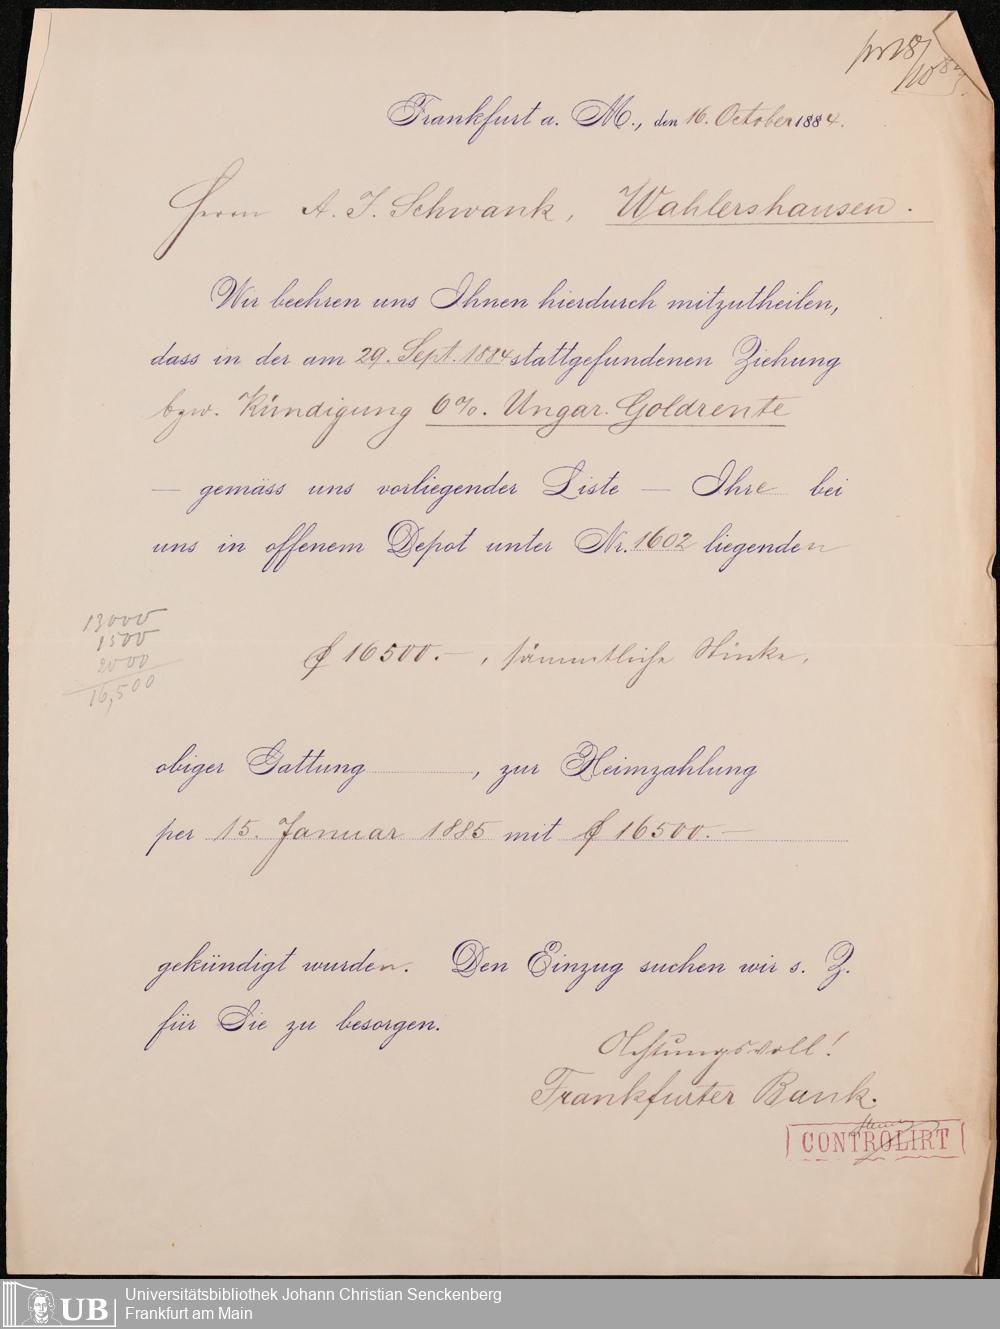 pr 18/
10 84.
Frankfurt a. M., den 16. October 1884.
Herrn A. J. Schwank, Wahlershausen.
Wir beehren uns Ihnen hierdurch mitzutheilen,
dass in der am 29. Sept. 1884 stattgefundenen Ziehung
bzw. Kündigung 6%. Ungar. Goldrente
— gemäss uns vorliegender Liste — Ihre bei
uns in offenem Depot unter Nr. 1602 liegenden
13000
1500
2000
16,500
f 16500.—, sämmtliche Stücke,
obiger Gattung, zur Heimzahlung
per 15. Januar 1885 mit f 16500.—
gekündigt wurden. Den Einzug suchen wir s. Z.
für Sie zu besorgen.
Achtungsvoll!
Frankfurter Bank.
CONTROLIRT
UB
Universitätsbibliothek Johann Christian Senckenberg
Frankfurt am Main